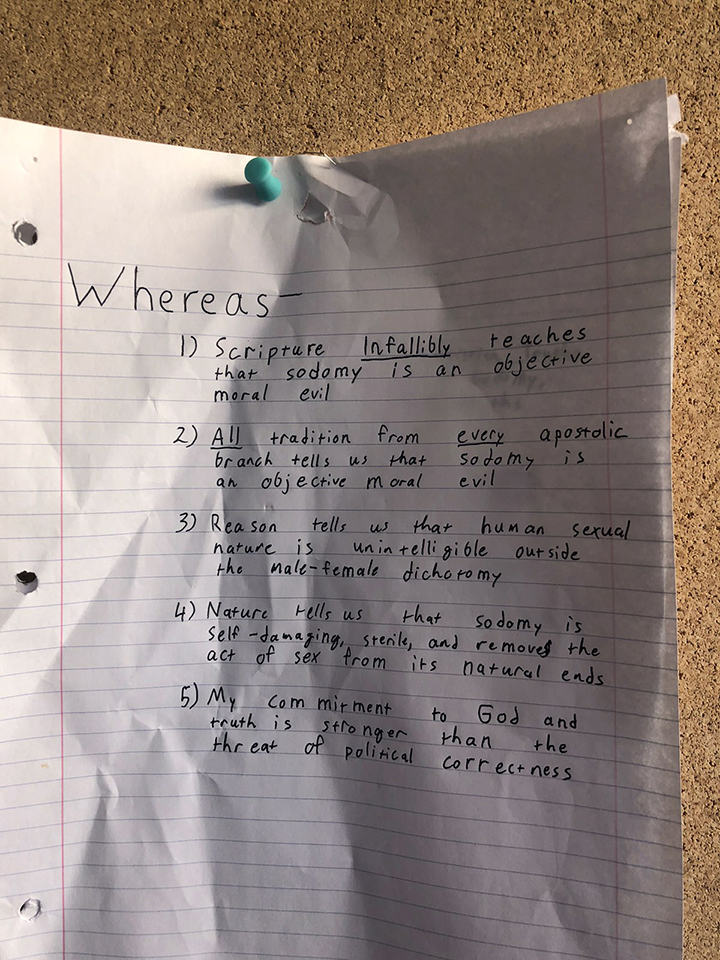 Whereas—
1) Scripture Infallibly teaches
that sodomy is an objective
moral evil
2) All tradition from every apostolic
branch tells us that sodomy is
an objective moral evil
3) Reason tells us that human sexual
nature is unintelligible outside
the male-female dichotomy
4) Nature tells us that sodomy is
self-damaging, sterile, and removes the
act of sex from its natural ends
5) My commitment to God and
truth is stronger than the
threat of political correctness